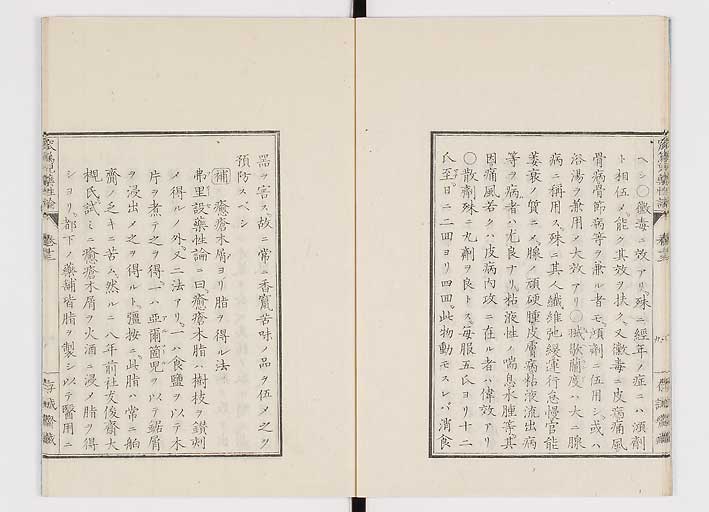 ヘシ○黴毒ニ效アリ殊ニ經年ノ症ニハ湏劑
ト相伍メ能ク其效ヲ扶ク又黴毒ニ皮瘍痛風
骨病骨節病等ヲ兼ル者モ湏劑ニ伍用シ或ハ
浴湯ヲ兼用メ大效アリ○
病ニ稱用ス殊ニ其人纎維弛緩運行怠慢官能
萎衰ノ質ニメ腺ノ頑硬腫皮膚病粘液流出病
等ヲ病者ハ尤良ナリ粘液性ノ喘息水腫等其
因痛風若クハ皮病内攻ニ在ル者ハ偉效アリ
○散劑殊ニ丸劑ヲ良トス毎服五氏ヨリ十二
氏至日ニ二四ヨリ四回此物動モスレバ消食
器ヲ害ス故ニ常ニ香竄苦味ノ品ヲ伍メ之ク
預防スベシ
補 癒瘡木屑ヨリ脂ヲ得ル法
弗里設藥性論ニ曰癒瘡木脂ハ樹枝ヲ鑚刺
メ得ルノ外又二法アリ一ハ食鹽ヲ以テ木
片ヲ煮テ之ヲ得一ハ亜爾箇児ヲ以テ鋸屑
ヲ浸出メ之ヲ得ルト彊按ニ此脂ハ常ニ舶
齎ノ乏キニ苦ム然ルニ八年前社友俊齋大
槻氏試ミニ癒瘡木屑ヲ火酒ニ浸メ脂ヲ得
シヨリ都下ノ藥舗皆脂ヲ製シ以テ醫用ニ